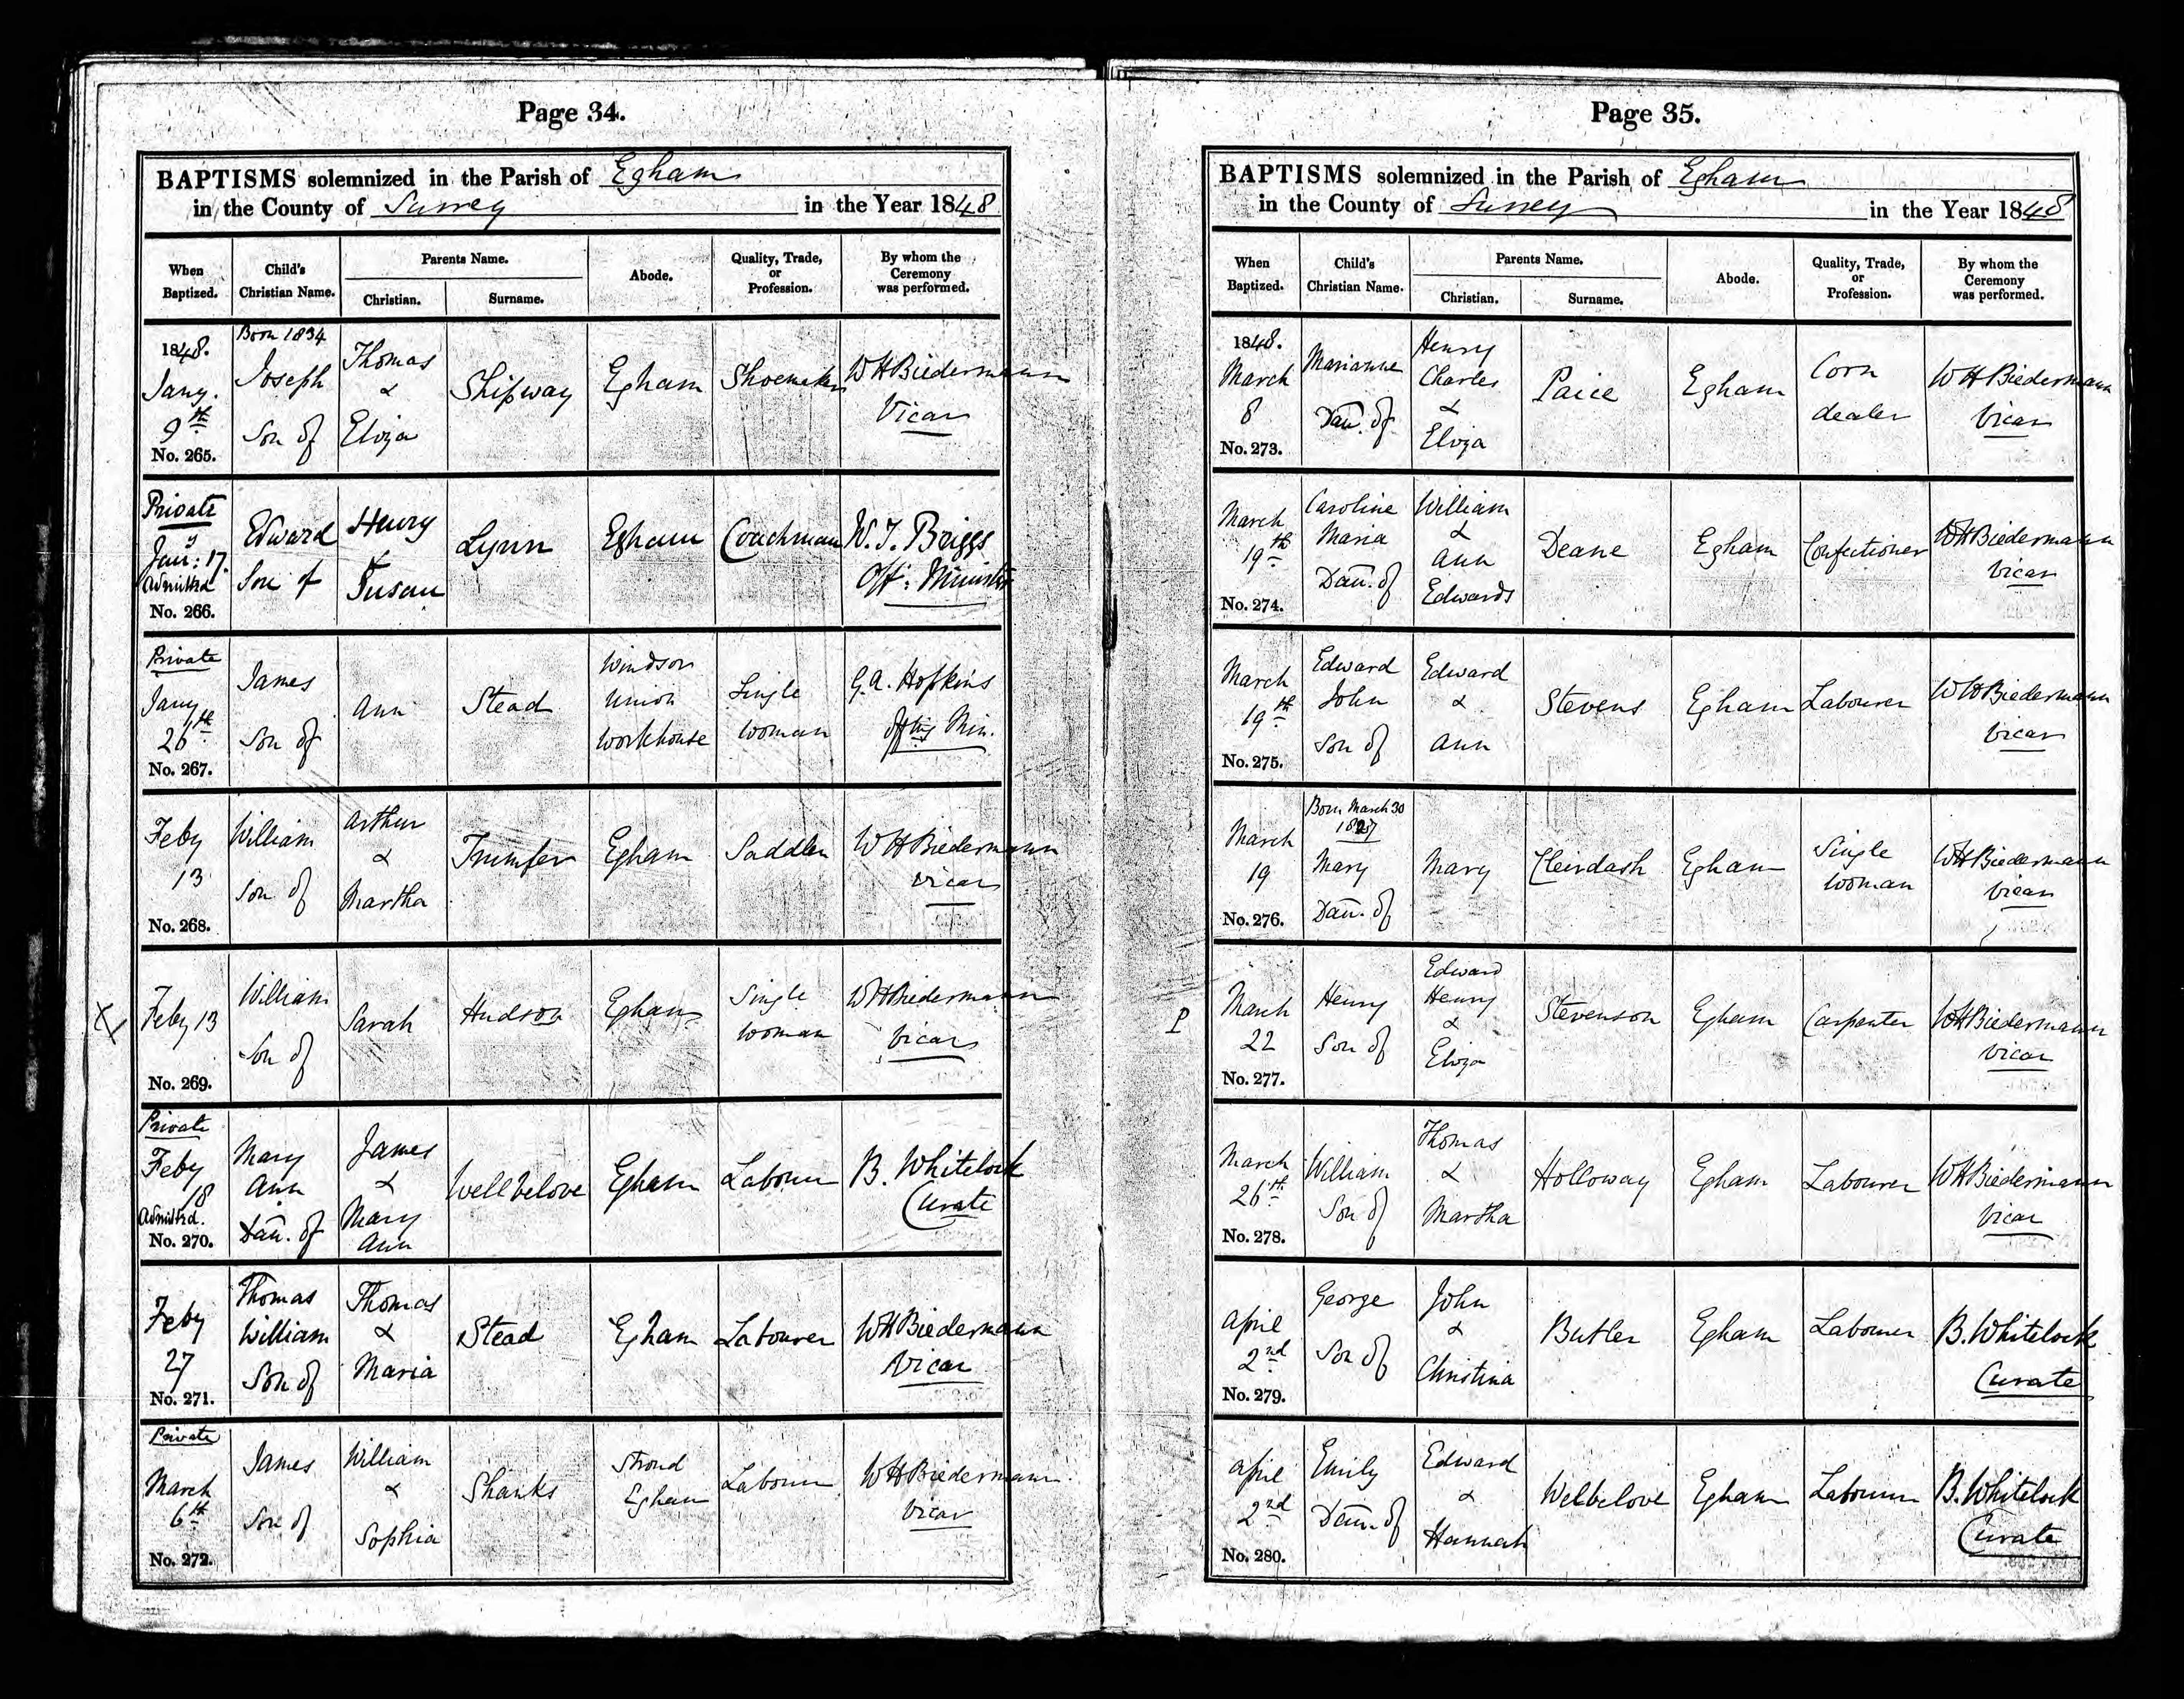 Page 34.
BAPTISMS solemnized in the Parish of Egham
in the County of Surrey in the Year 1848
When Baptized.
Child's Christian Name.
Parents Name.
Christian.
Surname.
Abode.
Quality, Trade, or Profession.
By whom the Ceremony was performed.
1848.
Jany.
9th
No. 265.
Born 1834
Joseph
Son of
Thomas
&
Eliza
Shipway
Egham
Shoemaker
W H Biedermann
Vicar
Private
Jany: 17.
Admittd
No. 266.
Edward
Son of
Henry
&
Susan
Lynn
Egham
Coachman
W. J. Briggs
Off: Minister
Private
Jany
26th
No. 267.
James
Son of
Ann
Stead
Windsor
Union
Workhouse
Single
woman
G. A. Hopkins
Offting Min.
Feby
13
No. 268.
William
Son of
Arthur
&
Martha
Trumper
Egham
Saddler
W H Biedermann
Vicar
X
Feby 13
No. 269.
William
Son of
Sarah
Hudson
Egham
Single
woman
W H Biedermann
Vicar
Private
Feby
18
Admittd.
No. 270.
Mary
Ann
Dau. of
James
&
Mary
Ann
Wellbelove
Egham
Labourer
B. Whitelock
Curate
Feby
27
No. 271.
Thomas
William
Son of
Thomas
&
Maria
Stead
Egham
Labourer
W H Biedermann
Vicar
Private
March
6th
No. 272.
James
Son of
William
&
Sophia
Shanks
Stroud
Egham
Labourer
W H Biedermann
Vicar
Page 35.
BAPTISMS solemnized in the Parish of Egham
in the County of Surrey in the Year 1848
When Baptized.
Child's Christian Name.
Parents Name.
Christian.
Surname.
Abode.
Quality, Trade, or Profession.
By whom the Ceremony was performed.
1848.
March
8
No. 273.
Marianne
Dau. of
Henry
Charles
&
Eliza
Paice
Egham
Corn
dealer
W H Biedermann
Vicar
March
19th
No. 274.
Caroline
Maria
Dau. of
William
&
Ann
Edwards
Deane
Egham
Confectioner
W H Biedermann
Vicar
March
19th
No. 275.
Edward
John
Son of
Edward
&
Ann
Stevens
Egham
Labourer
W H Biedermann
Vicar
March
19
No. 276.
Born March 30
Mary
Dau. of
Mary
Egham
Single
woman
W H Biedermann
Vicar
P
March
22
No. 277.
Henry
Son of
Edward
Henry
&
Eliza
Stevenson
Egham
Carpenter
W H Biedermann
Vicar
March
26th
No. 278.
William
Son of
Thomas
&
Martha
Holloway
Egham
Labourer
W H Biedermann
Vicar
April
2nd
No. 279.
George
Son of
John
&
Christina
Butler
Egham
Labourer
B. Whitelock
Curate
April
2nd
No. 280.
Emily
Dau. of
Edward
&
Hannah
Welbelove
Egham
Labourer
B. Whitelock
Curate